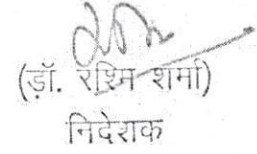 (ड़ॉ. रश्मि शर्मा)
निदेशक